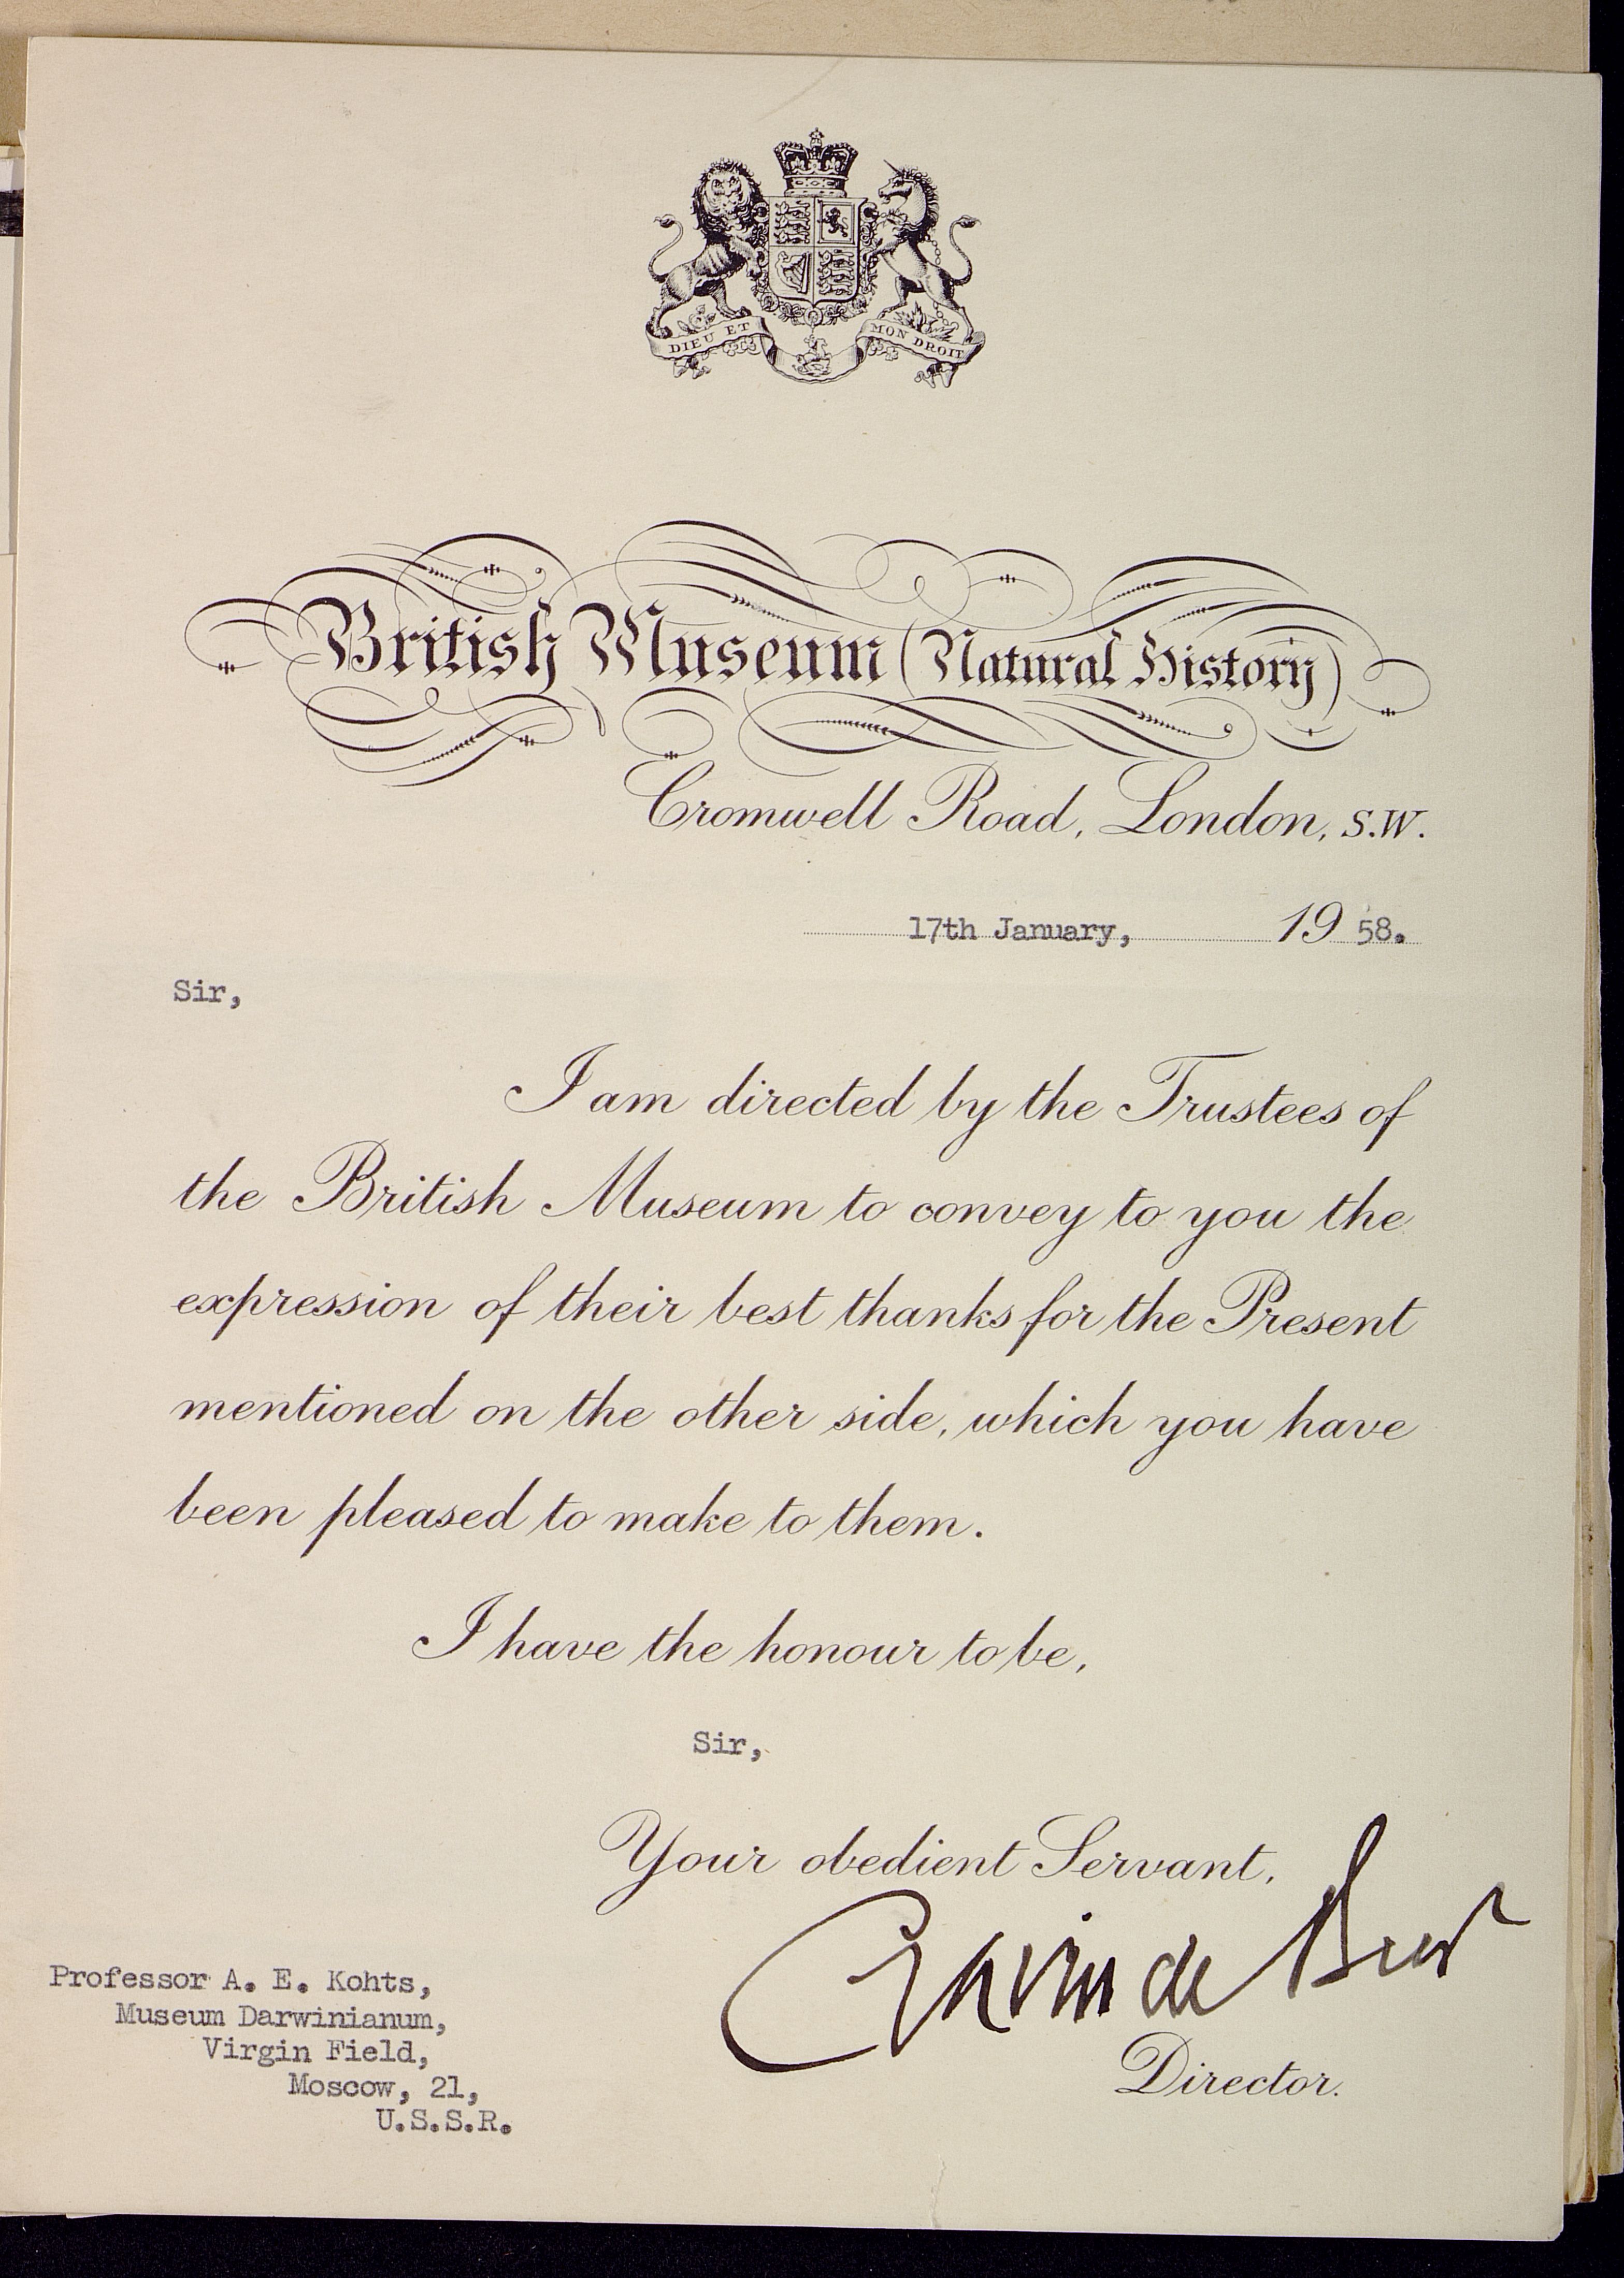 DIEU ET MON DROIT
British Museum (Natural History)
Cromwell Road, London, S.W.
17th January, 1958.
Sir,
I am directed by the Trustees of
the British Museum to convey to you the
expression of their best thanks for the Present
mentioned on the other side, which you have
been pleased to make to them.
I have the honour to be,
Sir,
Your obedient Servant,
Gavin de Beer
Director.
Professor A. E. Kohts,
Museum Darwinianum,
Virgin Field,
Moscow, 21,
U.S.S.R.